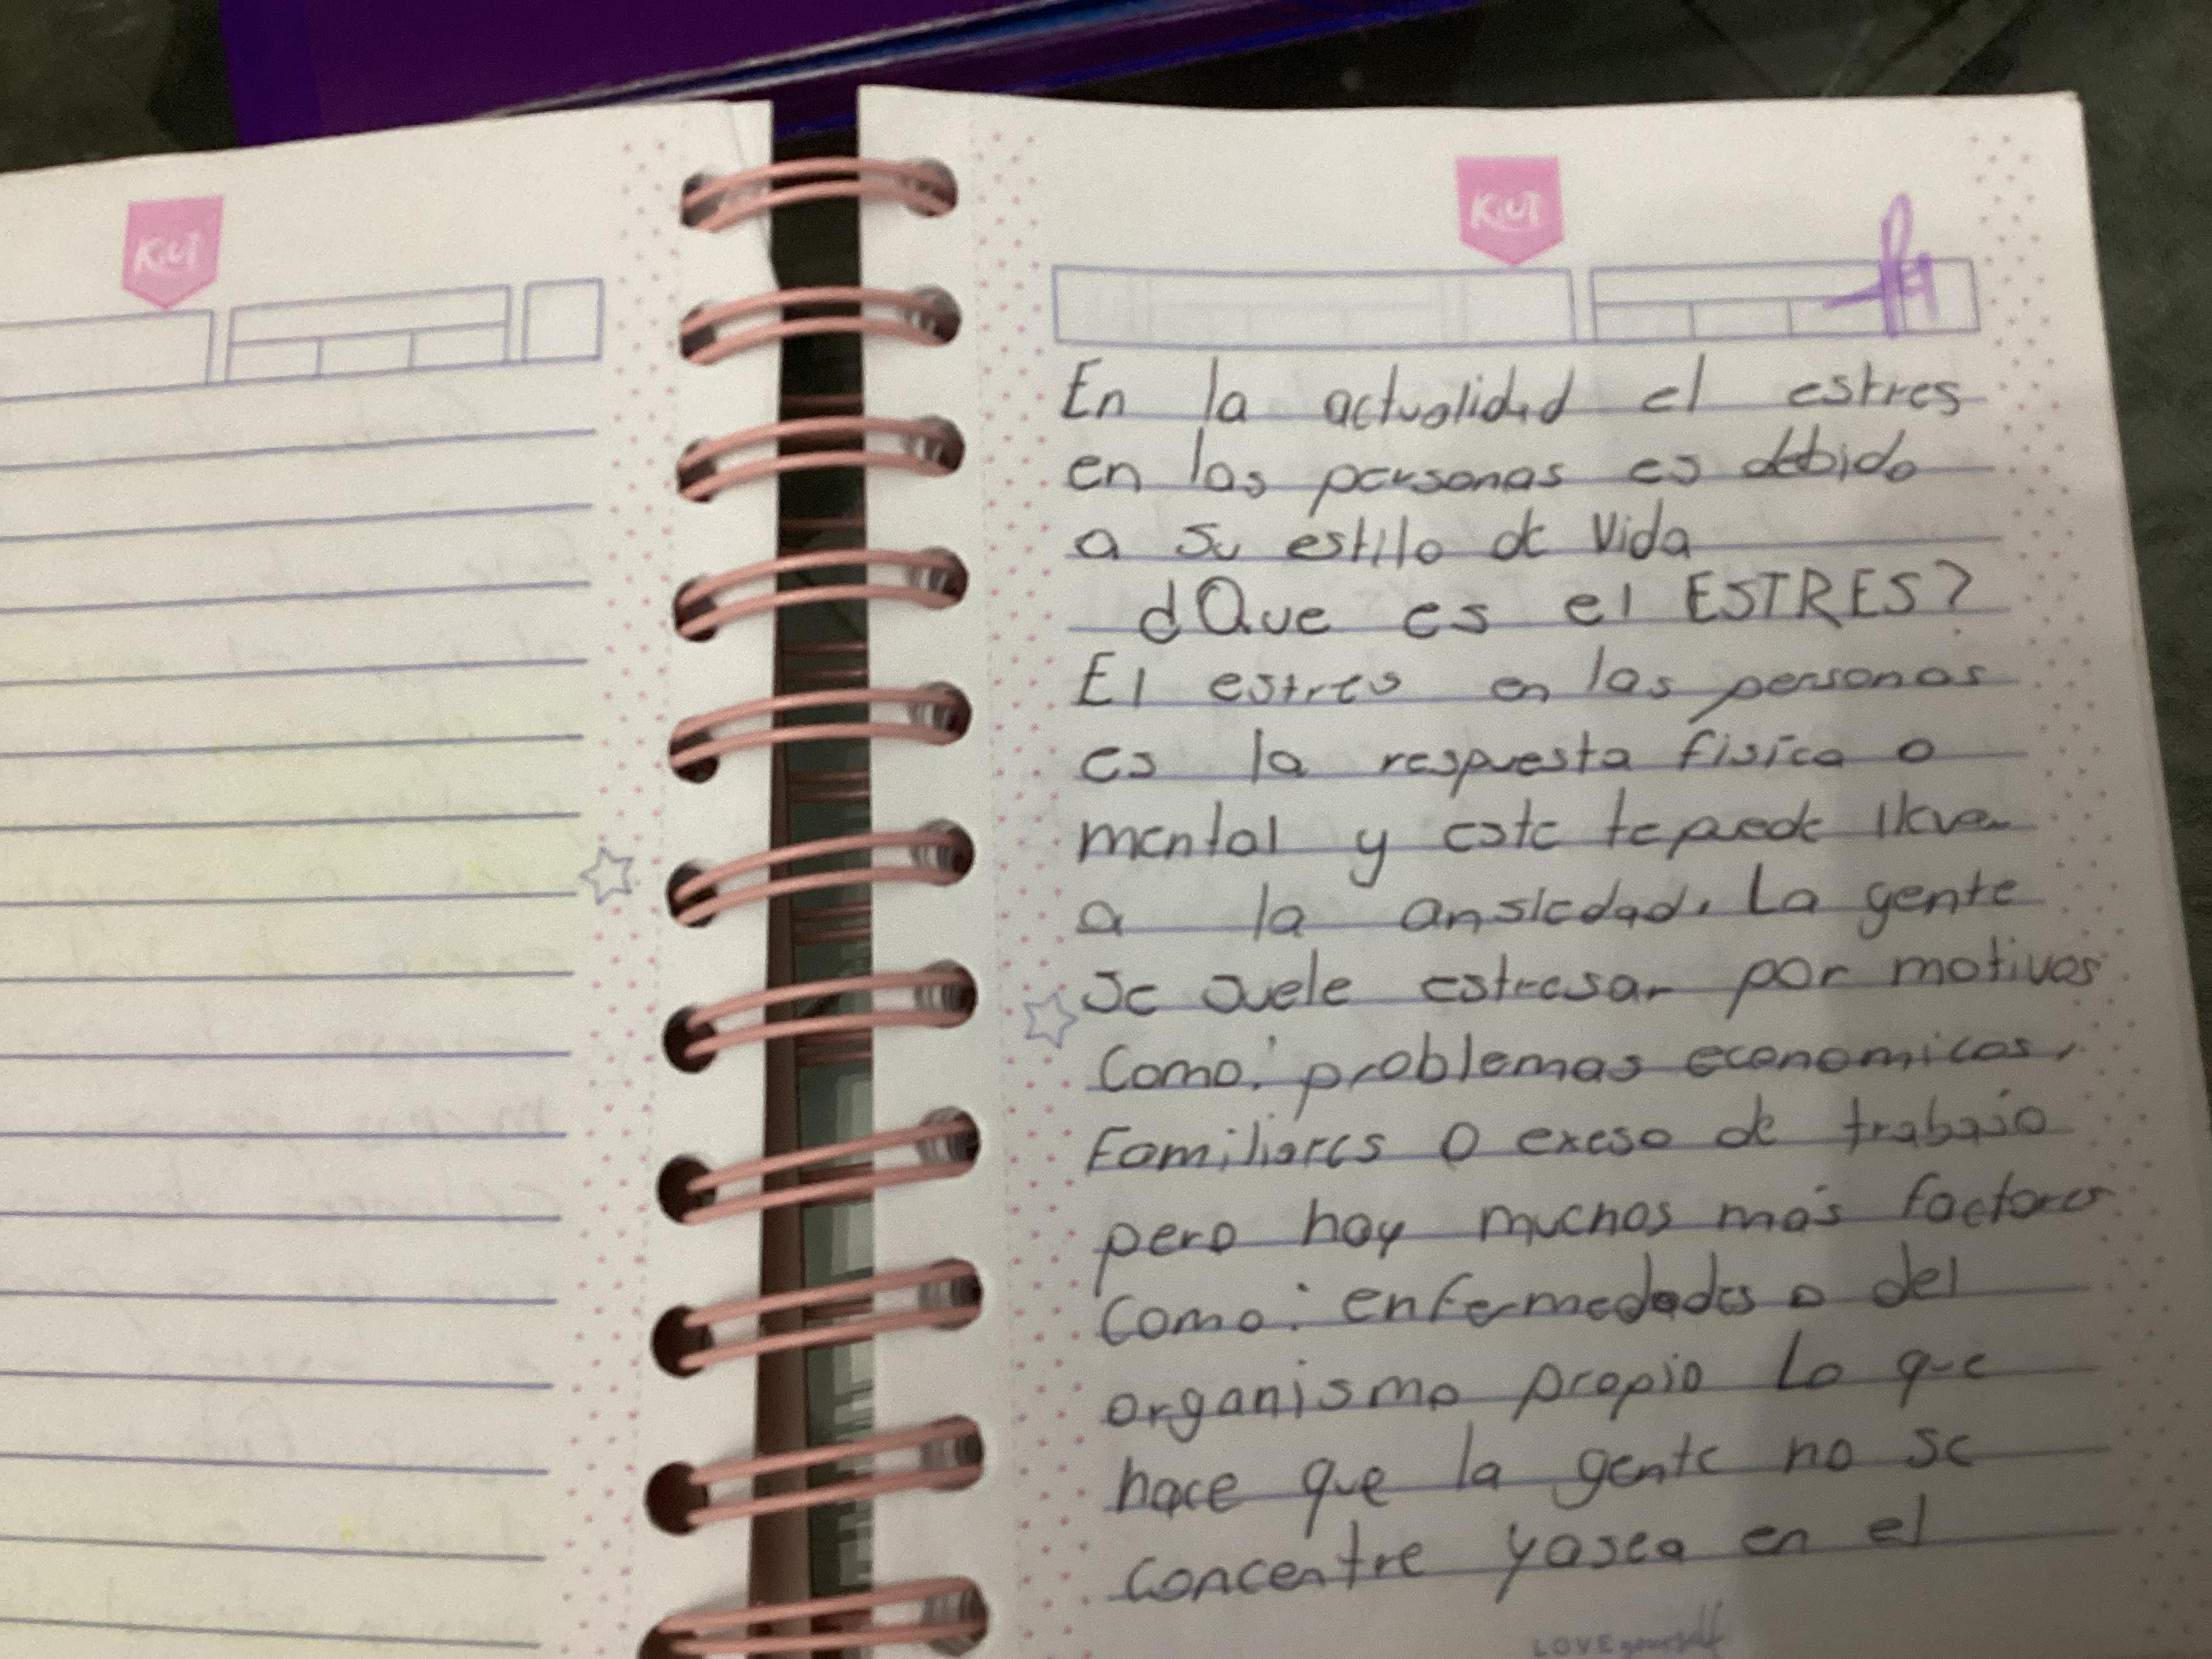 Kiut
Kiut
En la actualidad el estres
en las personas es debido
a su estilo de vida
¿Que es el ESTRES?
El estres en las personas
es la respuesta fisica o
mental y este te puede llevar
a la ansiedad. La gente
se suele estresar por motivos
como: problemas economicos,
Familiares o exeso de trabajo
pero hay muchos más factores
como: enfermedades o del
organismo propio lo que
hace que la gente no se
concentre ya sea en el
LOVE yourself